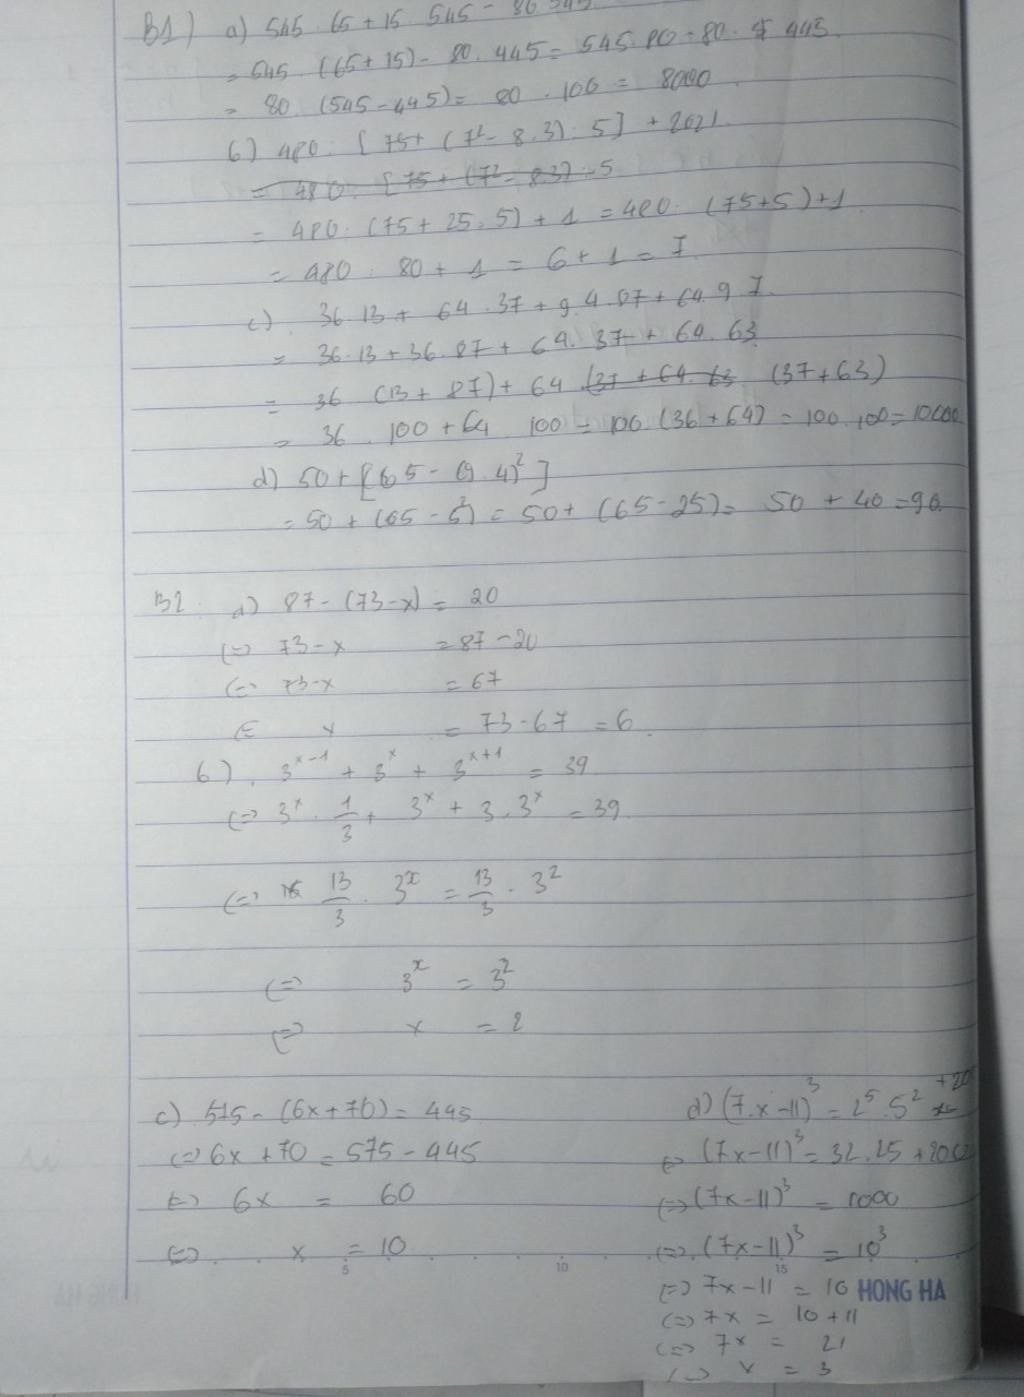 B1) a) 545 . 65 + 15 . 545 -
= 545 . (65 + 15) - 80 . 445 = 545 . 80 - 80 . 445
= 80 . (545 - 445) = 80 . 100 = 8000
b) 480 : [75 + (7² - 8.3) : 5] +
= 480 : [75 + (7² - 8.3) : 5
= 480 : (75 + 25 : 5) + 1 = 480 : (75 + 5) + 1
= 480 : 80 + 1 = 6 + 1 = 7
c) 36.13 + 64 . 37 + 9.4.87 + 64.9 7
= 36.13 + 36.87 + 64.37 + 64.63
= 36 (13 + 87) + 64 (37 + 64.63 (37 + 63)
= 36 . 100 + 64 . 100 = 100 . (36 + 64) = 100 . 100 = 10000
d) 50 + [65 - (9 - 4)²]
= 50 + (65 - 5²) = 50 + (65 - 25) = 50 + 40 = 90
B2 a) 87 - (73 - x) = 20
(=) 73 - x = 87 - 20
(=) 73 - x = 67
(= x = 73 - 67 = 6
b) 3ˣ⁻¹ + 3ˣ + 3ˣ⁺¹ = 39
(=) 3ˣ . 1/3 + 3ˣ + 3 . 3ˣ = 39
(=) 13/3 . 3ˣ = 13/3 . 3²
(=) 3ˣ = 3²
(=) x = 2
c) 575 - (6x + 70) = 445
(=) 6x + 70 = 575 - 445
(=) 6x = 60
(=) x = 10
d) (7.x - 11)³ = 2⁵ . 5² +
(=) (7x - 11)³ = 32.25 + 200
(=) (7x - 11)³ = 1000
(=) (7x - 11)³ = 10³
5 10 15
(=) 7x - 11 = 10 HONG HA
(=) 7x = 10 + 11
(=) 7x = 21
(=) x = 3